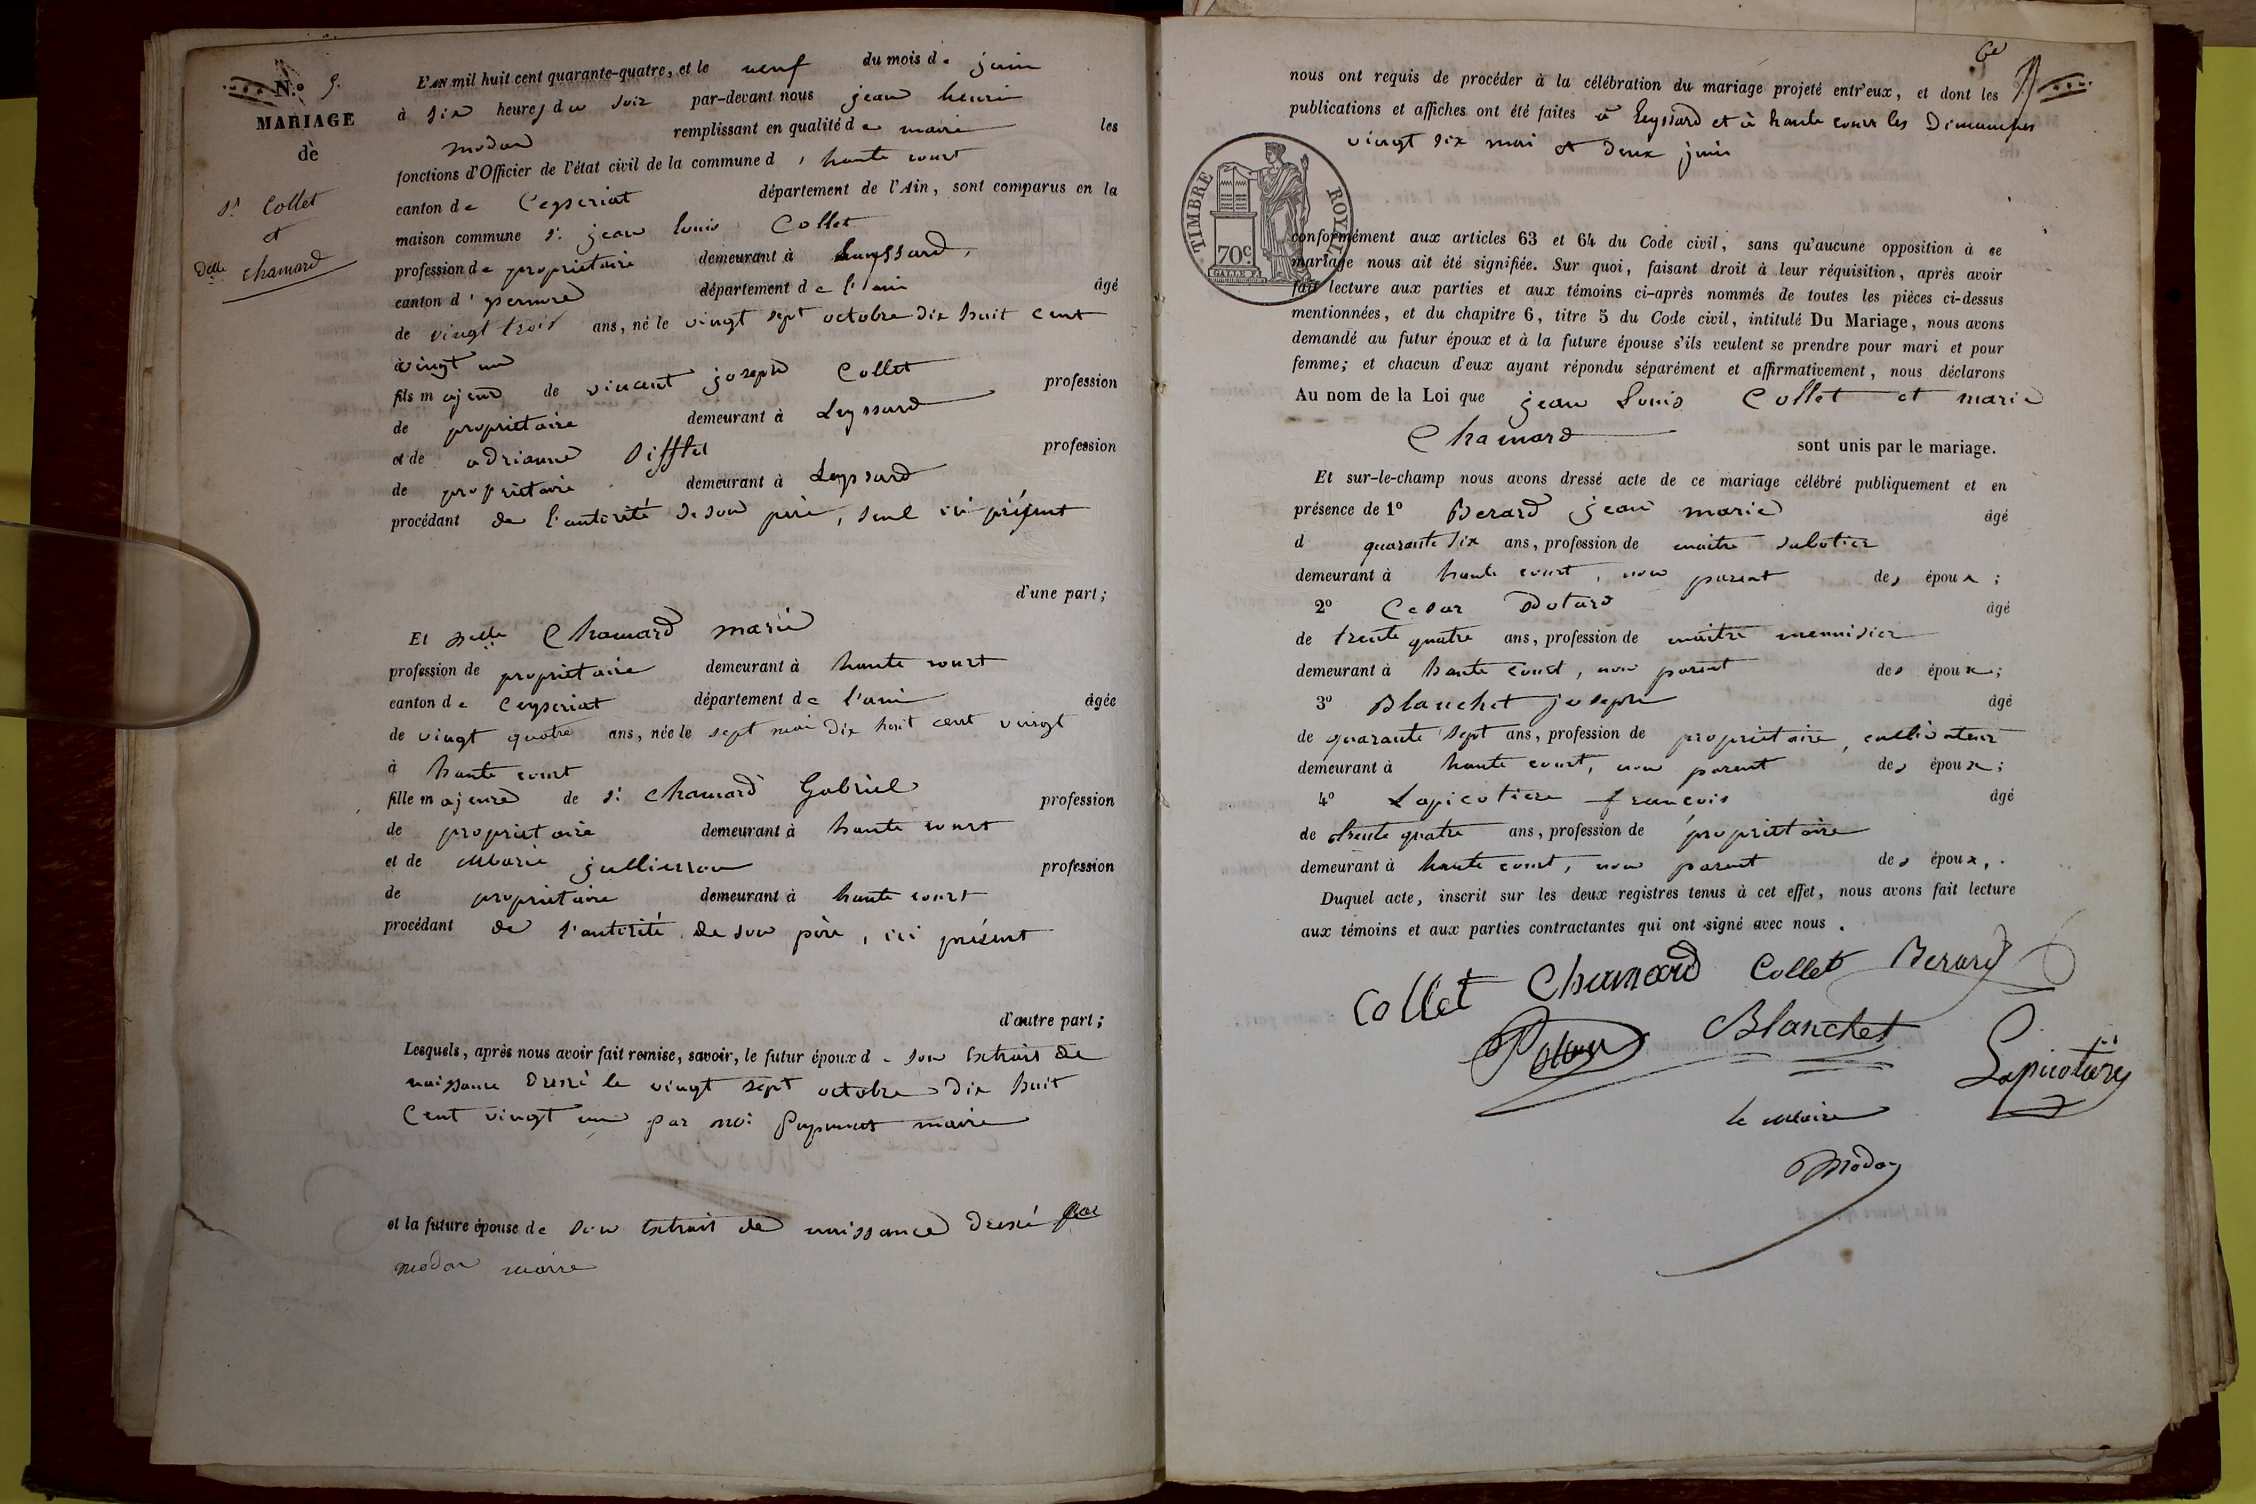 N.º 9.
MARIAGE
de
Sr Collet
et
Delle Chamard
L'AN mil huit cent quarante-quatre, et le neuf du mois de juin
à six heures du soir par-devant nous jean henri
modas remplissant en qualité de maire les
fonctions d'Officier de l'état civil de la commune d, haute court
canton de Ceyseriat département de l'Ain, sont comparus en la
maison commune Sr. jean louis Collet
profession de proprietaire demeurant à Leyssard,
canton d' département de l'ain âgé
de vingt trois ans, né le vingt sept octobre dix huit cent
vingt un
fils majeur de vincent joseph Collet profession
de proprietaire demeurant à Leyssard
et de adrianne Sifflet profession
de proprietaire demeurant à Leyssard
procédant de l'autorité de son père, seul ici présent
d'une part;
Et Delle Chamard marie
profession de proprietaire demeurant à haute court
canton de Ceyseriat département de l'ain âgée
de vingt quatre ans, née le sept mai dix huit cent vingt
à haute court
fille majeure de Sr. Chamard Gabriel profession
de proprietaire demeurant à haute court
et de Marie jullieron profession
de proprietaire demeurant à haute court
procédant de l'autorité de son père, ici présent
d'autre part;
Lesquels, après nous avoir fait remise, savoir, le futur époux de son Extrait de
naissance Dressé le vingt sept octobre dix huit
Cent vingt un par maire
et la future épouse de son Extrait de naissance Dressé par
modas maire
6e
nous ont requis de procéder à la célébration du mariage projeté entr'eux, et dont les
publications et affiches ont été faites à Leyssard et à haute court les Dimanches
vingt six mai et deux juin
TIMBRE ROYAL
70c.
conformément aux articles 63 et 64 du Code civil, sans qu'aucune opposition à ce
mariage nous ait été signifiée. Sur quoi, faisant droit à leur réquisition, après avoir
fait lecture aux parties et aux témoins ci-après nommés de toutes les pièces ci-dessus
mentionnées, et du chapitre 6, titre 5 du Code civil, intitulé Du Mariage, nous avons
demandé au futur époux et à la future épouse s'ils veulent se prendre pour mari et pour
femme; et chacun d'eux ayant répondu séparément et affirmativement, nous déclarons
Au nom de la Loi que jean Louis Collet et marie
Chamard sont unis par le mariage.
Et sur-le-champ nous avons dressé acte de ce mariage célébré publiquement et en
présence de 1º Berard jean marie âgé
d quarante six ans, profession de maitre sabotier
demeurant à haute court, non parent des époux;
2º Cesar Dotard âgé
de trente quatre ans, profession de maitre menuisier
demeurant à haute court, non parent des époux;
3º Blanchet joseph âgé
de quarante sept ans, profession de proprietaire, cultivateur
demeurant à haute court, non parent des époux;
4º Lapicotiere françois âgé
de trente quatre ans, profession de proprietaire
demeurant à haute court, non parent des époux,.
Duquel acte, inscrit sur les deux registres tenus à cet effet, nous avons fait lecture
aux témoins et aux parties contractantes qui ont signé avec nous.
Collet Chamard Collet Berard
Blanchet Lapicotiere
le Maire
Modas